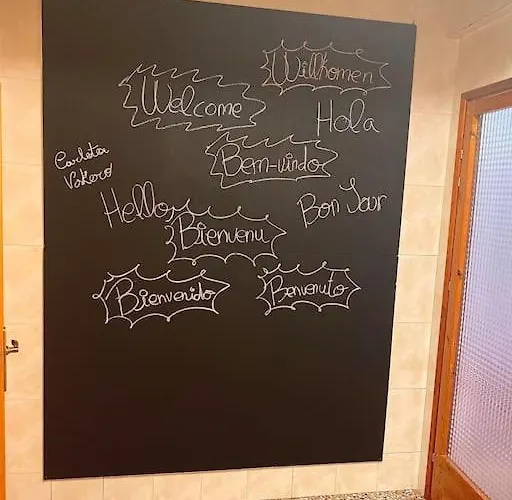 Willkomen
Welcome
Hola
Bem-vindo
Hello
Bon Jour
Bienvenu
Bienvenido
Benvenuto